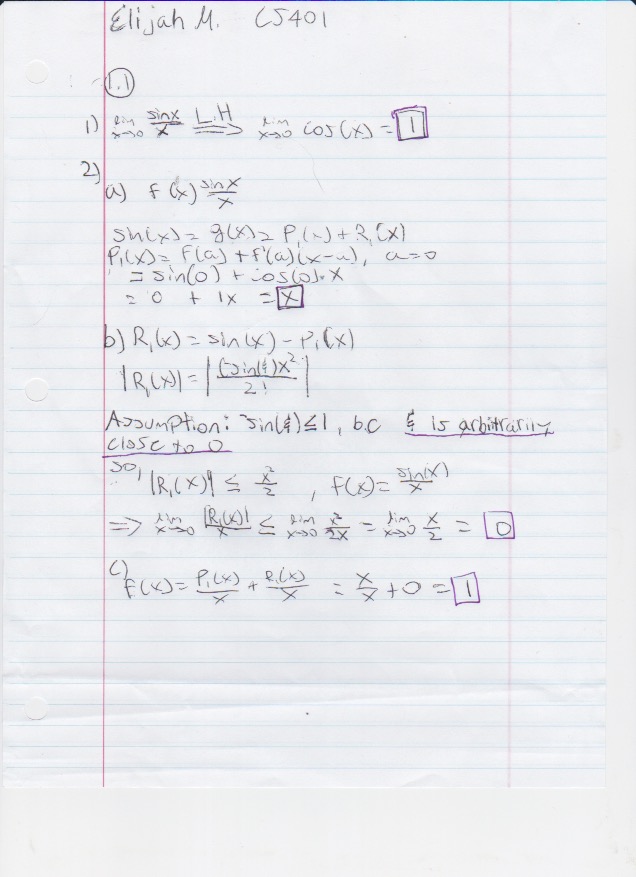 Elijah M. CS401
1.1
1) lim x→0 sinx/x L.H ⟹ lim x→0 cos(x) = 1
2)
a) f(x) sinx/x
sin(x) = g(x) = P₁(x) + R₁(x)
P₁(x) = f(a) + f'(a)(x-a), a=0
= sin(0) + cos(0)·x
= 0 + 1x = x
b) R₁(x) = sin(x) - P₁(x)
|R₁(x)| = |(sin(ξ))x²/2!|
Assumption: sin(ξ) ≤ 1, b.c ξ is arbitrarily
close to 0
so, |R₁(x)| ≤ x²/2, f(x) = sin(x)/x
⟹ lim x→0 |R₁(x)|/x ≤ lim x→0 x²/2x = lim x→0 x/2 = 0
c)
f(x) = P₁(x)/x + R₁(x)/x = x/x + 0 = 1